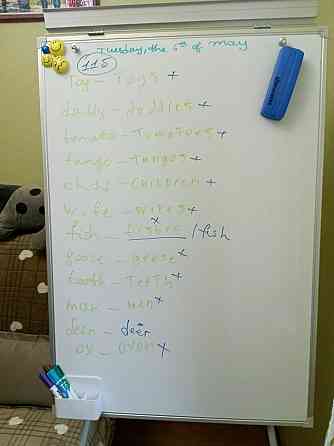 Tuesday, the 6th of may
115
Toy - Toys +
daddy - daddies +
tomato - Tomatoes +
tango - Tangos +
child - Children +
wife - wives +
fish - fishes x / fish
goose - geese x
tooth - Teeth x
man - men x
deer - deer
ox - oxen x